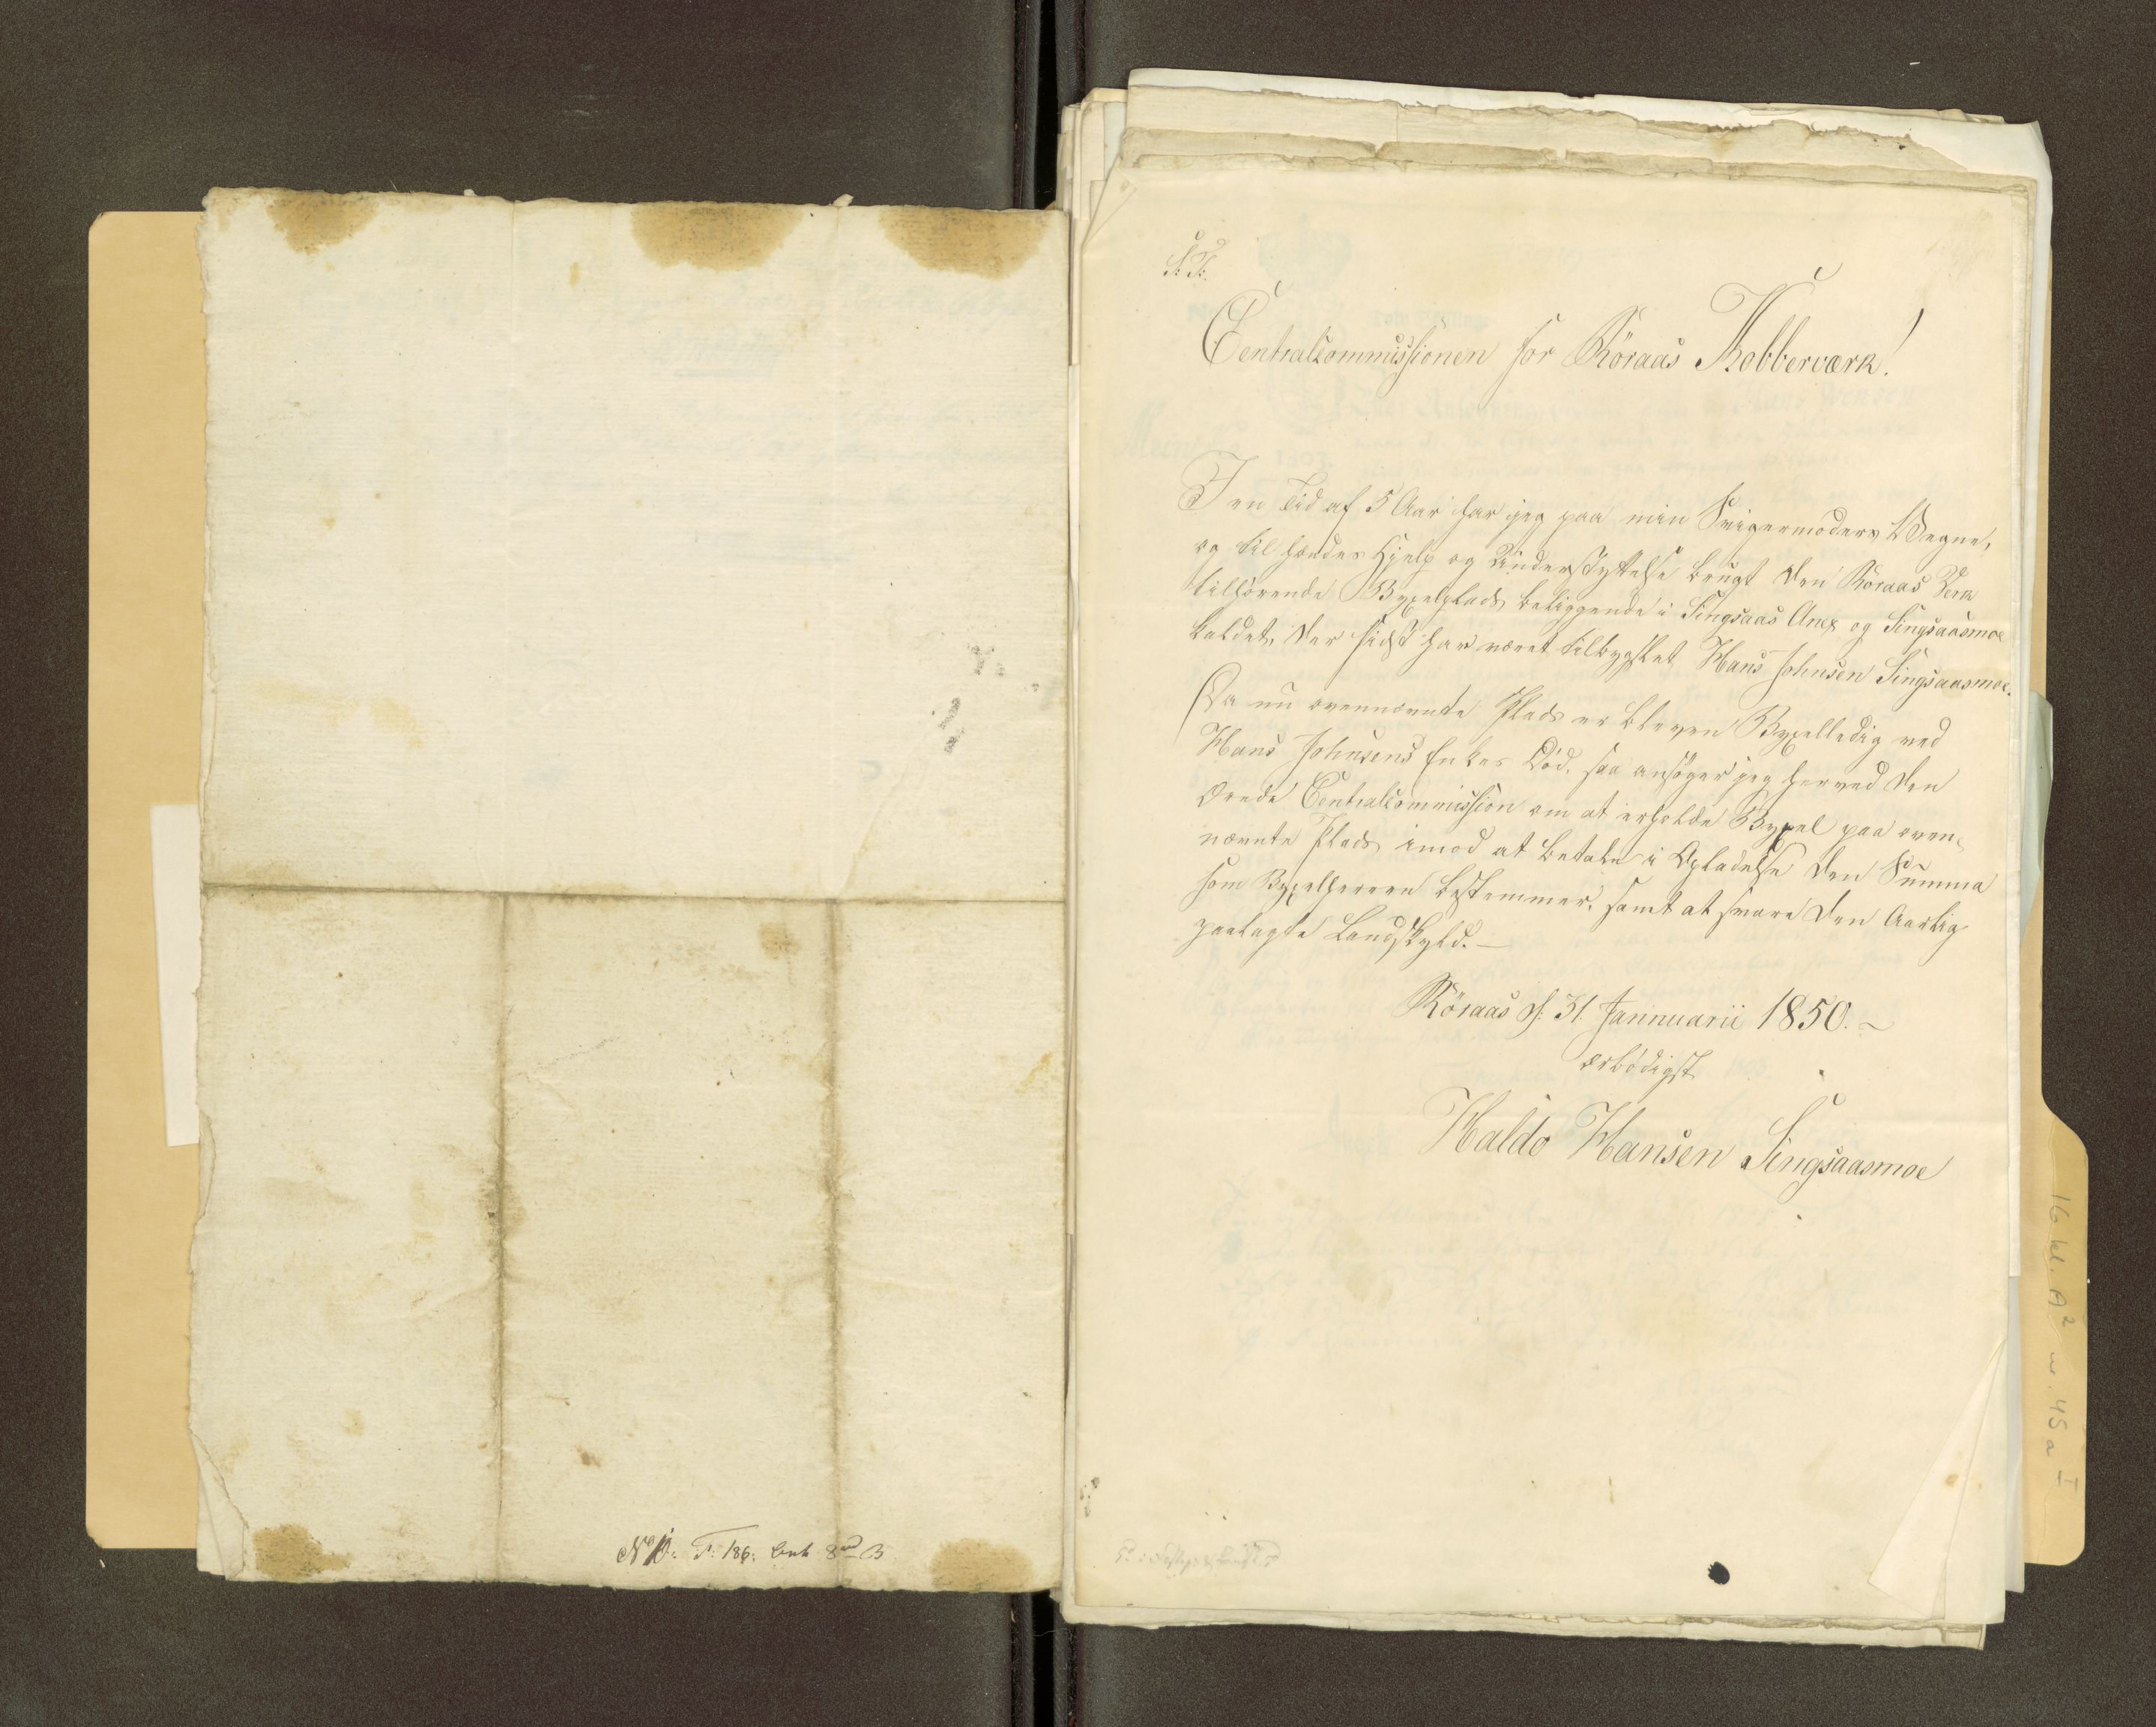 No 10. F. 186.
S. T.
Centralcommissionen for Röraas Kobberværk!
I en Tid af 5 Aar har jeg paa min Svigermoders Vegne,
og til hendes Hjelp og Understøttelse brugt den Röraas Verk
tilhörende Byxelplads beliggende i Singsaas Anex og Singsaasmoe
kaldet, der sidst har været tilbyxlet Hans Johnsen Singsaasmoe.
Da nu ovennævnte Plads er bleven Byxelledig ved
Hans Johnsens Enkes Död, saa ansöger jeg herved den
Ærede Centralcommission om at erholde Byxel paa oven-
nævnte Plads imod at betale i Opladelse den Summa
som Byxelherren bestemmer, samt at svare den Aarlig
paalagte Landskyld.—
Röraas d: 31 Jannuarii 1850.
ærbödigst
Haldo Hansen Singsaasmoe
16 kl. A2 nr. 45 a I